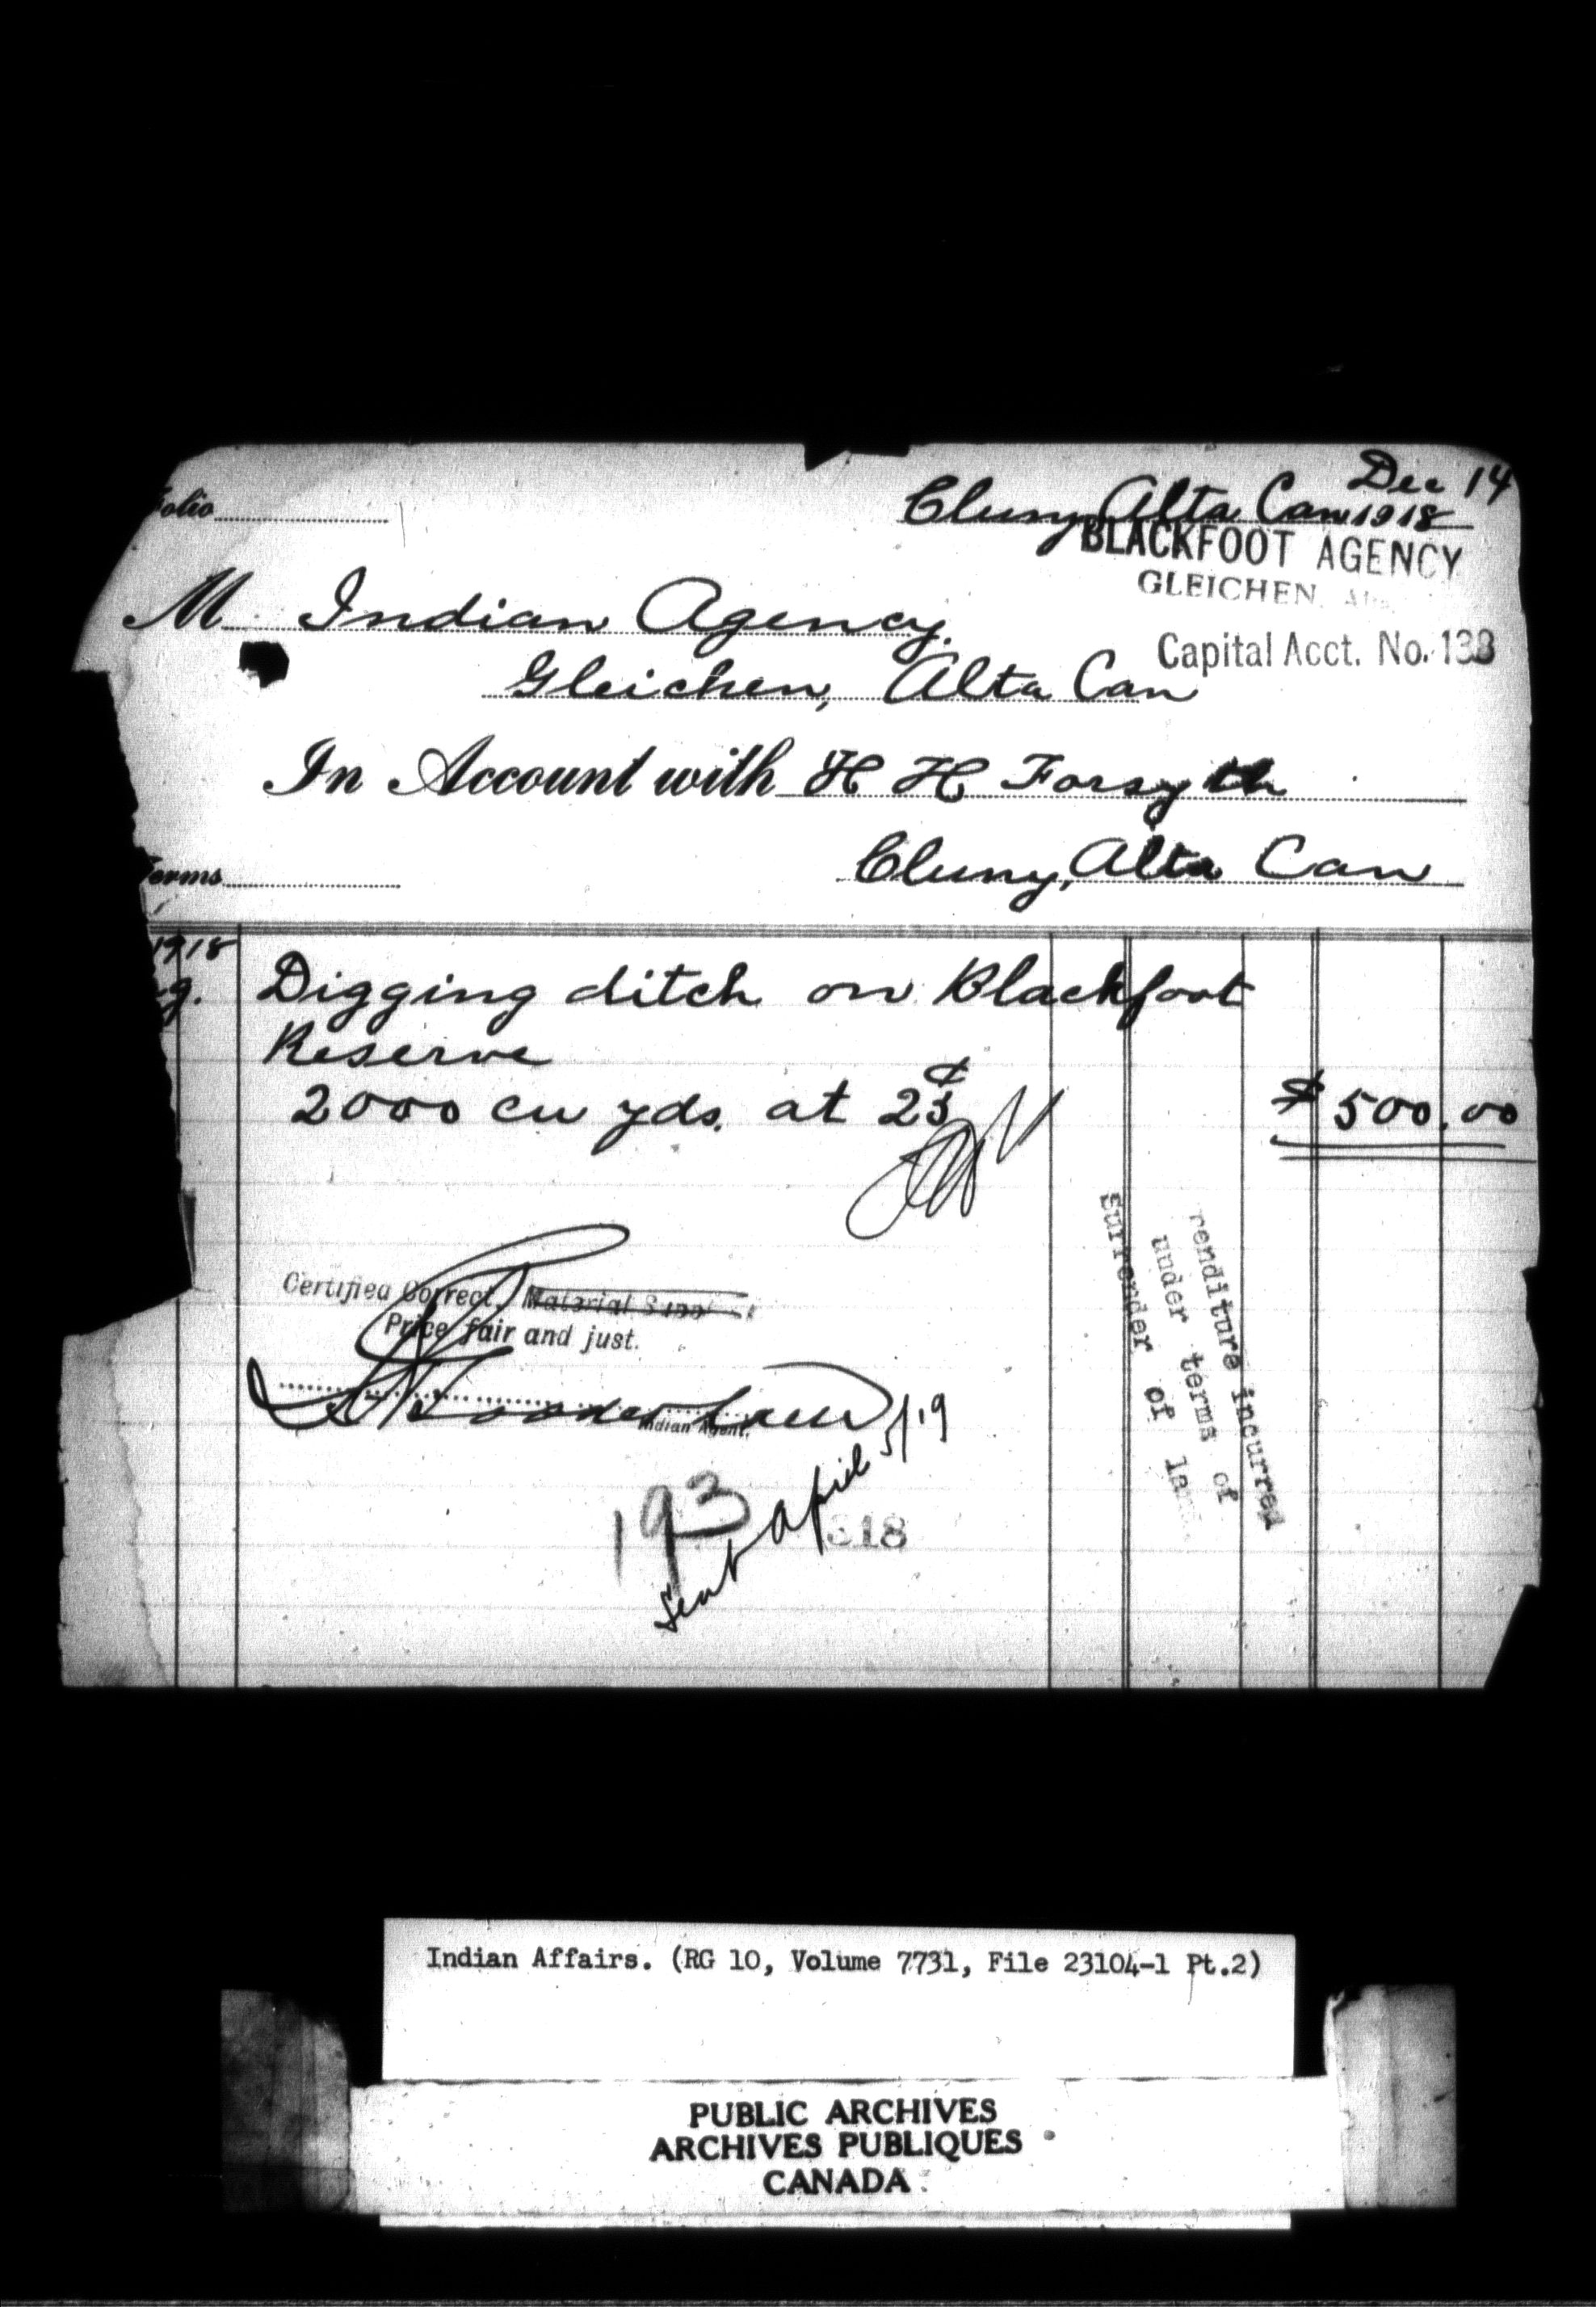 Folio
Cluny Alta Can Dec 14
1918
BLACKFOOT AGENCY
GLEICHEN, Alta.
M Indian Agency.
Capital Acct. No. 133
Gleichen, Alta Can
In Account with H H Forsyth
Terms
Cluny, Alta Can
1918
Digging ditch on Blackfoot
Reserve
2000 cu yds. at 25¢
$500.00
Certified Correct. Material
Price fair and just.
Indian Agent.
193
Sent April 5/19
318
renditure incurred
under terms of
surrender of land
Indian Affairs. (RG 10, Volume 7731, File 23104-1 Pt.2)
PUBLIC ARCHIVES
ARCHIVES PUBLIQUES
CANADA